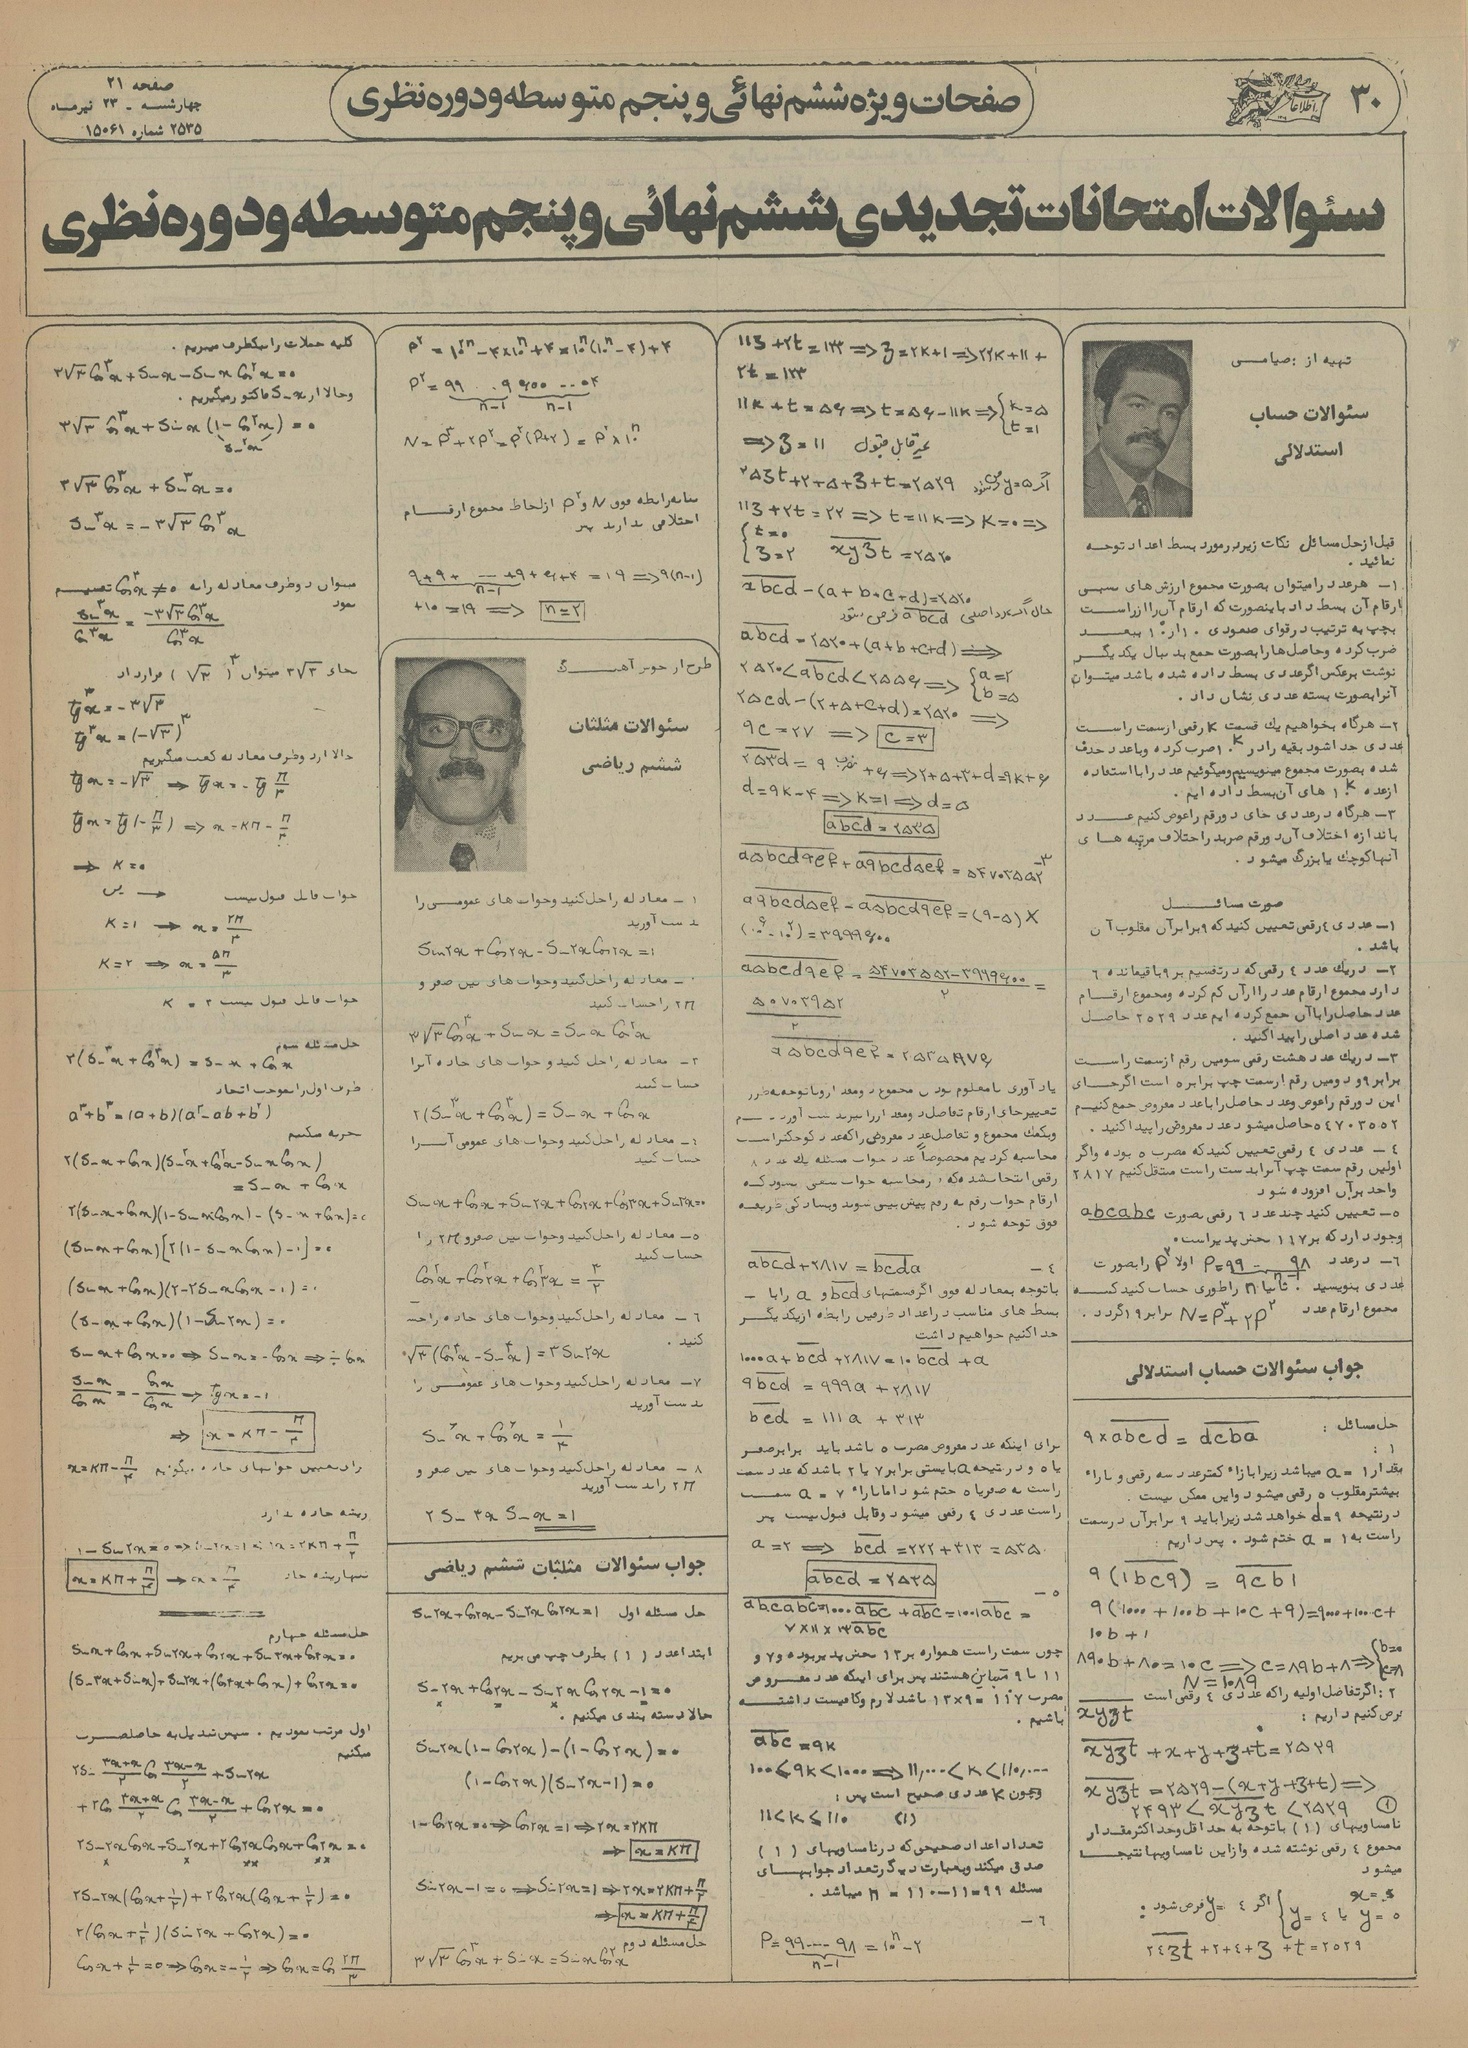 ۳۰
اطلاعات
صفحات ویژه ششم نهائی و پنجم متوسطه و دوره نظری
صفحه ۲۱
چهارشنبه - ۲۳ تیرماه
۲۵۳۵ شماره ۱۵۰۶۱
سئوالات امتحانات تجدیدی ششم نهائی و پنجم متوسطه و دوره نظری
تهیه از : صیامی
سئوالات حساب
استدلالی
قبل از حل مسائل نکات زیر در مورد بسط اعداد توجه
نمائید .
۱- هر عدد را میتوان بصورت مجموع ارزش های نسبی
ارقام آن بسط داد باینصورت که ارقام آن را از راست
بچپ به ترتیب در قوای صعودی ۱۰ از ۱۰⁰ ببعد
ضرب کرده و حاصل ها را بصورت جمع بدنبال یکدیگر
نوشت برعکس اگر عددی بسط داده شده باشد میتوان
آنرا بصورت بسته عددی نشان داد .
۲- هرگاه بخواهیم یك قسمت K رقمی از سمت راست
عددی جدا شود بقیه را در ۱۰ᴷ ضرب کرده و با عدد حذف
شده بصورت مجموع مینویسیم و میگوئیم عدد را با استفاده
از عده ۱۰ᴷ های آن بسط داده ایم .
۳- هرگاه در عددی جای دو رقم را عوض کنیم عدد
باندازه اختلاف آن دو رقم ضربدر اختلاف مرتبه های
آنها کوچك یا بزرگ میشود .
صورت مسائل
۱- عددی ٤ رقمی تعیین کنید که ۹ برابر آن مقلوب آن
باشد .
۲- در یك عدد ٤ رقمی که در تقسیم بر ۹ باقیمانده ٦
دارد مجموع ارقام عدد را از آن کم کرده و مجموع ارقام
عدد حاصل را با آن جمع کرده ایم عدد ۲۵۲۹ حاصل
شده عدد اصلی را پیدا کنید .
۳- در یك عدد هشت رقمی سومین رقم از سمت راست
برابر ۹ و دومین رقم از سمت چپ برابر ۵ است اگر جای
این دو رقم را عوض و عدد حاصل را با عدد مفروض جمع کنیم
۵٤۷۰۳۵۵۲ حاصل میشود عدد مفروض را پیدا کنید .
٤- عددی ٤ رقمی تعیین کنید که مضرب ۵ بوده و اگر
اولین رقم سمت چپ آنرا بدست راست منتقل کنیم ۲۸۱۷
واحد بر آن افزوده شود
۵- تعیین کنید چند عدد ٦ رقمی بصورت abcabc
وجود دارد که بر ۱۱۷ بخش پذیر است .
٦- در عدد P=۹۹...۹۸ اولا P² را بصورت
عددی بنویسید . ثانیا n را طوری حساب کنید که
مجموع ارقام عدد N=P³+۲P² برابر ۱۹ گردد .
جواب سئوالات حساب استدلالی
حل مسائل :
۹×abcd = dcba
۱ :
در نتیجه d=۹ خواهد شد زیرا باید ۹ برابر آن در سمت
راست به a=۱ ختم شود . پس داریم :
۹(1bc9) = 9cb1
۹(۱۰۰۰+۱۰۰b+۱۰c+۹)=۹۰۰۰+۱۰۰c+
۱۰b+۱
۸۹۰b+۸۰=۱۰c => c=۸۹b+۸ => {b=۰ c=۸
N=۱۰۸۹
۲ : اگر تفاضل اولیه را که عددی ٤ رقمی است
xyzt فرض کنیم داریم :
xyzt + x+y+z+t=۲۵۲۹
xyzt = ۲۵۲۹-(x+y+z+t) =>
۲۴۹۳<xyzt<۲۵۲۹ (۱)
نامساویهای (۱) با توجه به حداقل و حداکثر مقدار
مجموع ٤ رقمی نوشته شده و از این نامساویها نتیجه
میشود
y=۵ یا y=٤ } اگر y=٤ فرض شود :
۲٤zt+۲+٤+z+t=۲۵۲۹
۱۱z+۲t=۱۳۳ => z=۲k+۱ => ۲۲k+۱۱+
۲t=۱۳۳
۱۱k+t=۵۶ => t=۵۶-۱۱k => {k=۵ t=۱
=> z=۱۱ غیر قابل قبول
اگر y=۵ فرض شود ۲۵zt+۲+۵+z+t=۲۵۲۹
۱۱z+۲t=۲۲ => t=۱۱k => k=۰ =>
{t=۰ z=۲ xyzt=۲۵۲۰
abcd-(a+b+c+d)=۲۵۲۰
حال اگر عدد اصلی abcd فرض شود
abcd=۲۵۲۰+(a+b+c+d) =>
۲۵۲۰<abcd<۲۵۵۶ => {a=۲ b=۵
۲۵cd-(۲+۵+c+d)=۲۵۲۰ =>
۹c=۲۷ => c=۳
۲۵۳d=مضرب ۹+۶ => ۲+۵+۳+d=۹k+۶
d=۹k-۴ => k=۱ => d=۵
abcd=۲۵۳۵
a5bcd9ef+a9bcd5ef=۵۴۷۰۳۵۵۲
a9bcd5ef-a5bcd9ef=(۹-۵)×
(۱۰⁶-۱۰²)=۳۹۹۹۶۰۰
یادآوری با معلوم بودن مجموع دو عدد و با توجه بطرز
تغییر جای ارقام تفاضل دو عدد را نیز بدست آوردیم
وبکمك مجموع و تفاضل عدد مفروض را که عدد کوچکتر است
محاسبه کردیم مخصوصاً عدد جواب مسئله یك عدد ۸
رقمی انتخاب شده که در محاسبه جواب سعی نشود که
ارقام جواب رقم به رقم پیش بینی شوند و بسادگی طریقه
فوق توجه شود .
٤- abcd+۲۸۱۷=bcda
با توجه بمعادله فوق اگر قسمتهای bcd و a را با
بسط های مناسب در اعداد طرفین رابطه از یکدیگر
جدا کنیم خواهیم داشت
۱۰۰۰a+bcd+۲۸۱۷=۱۰bcd+a
۹bcd=۹۹۹a+۲۸۱۷
bcd=۱۱۱a+۳۱۳
برای اینکه عدد مفروض مضرب ۵ باشد باید d برابر صفر
یا ۵ و در نتیجه a بایستی برابر ۷ یا ۲ باشد که عدد سمت
راست به صفر یا ۵ ختم شود اما بازاء a=۷ سمت
راست عددی ٤ رقمی میشود و قابل قبول نیست پس
a=۲ => bcd=۲۲۲+۳۱۳=۵۳۵
abcd=۲۵۳۵
۵-
abcabc=۱۰۰۰abc+abc=۱۰۰۱abc=
۷×۱۱×۱۳abc
چون سمت راست همواره بر ۱۳ بخش پذیر بوده و ۷ و
۱۱ با ۹ متباین هستند پس برای اینکه عدد مفروض
مضرب ۱۱۷=۹×۱۳ باشد لازم و کافیست داشته
باشیم .
abc=۹k
۱۰۰<۹k<۱۰۰۰ => ۱۱,...<k<۱۱۱,...
و چون k عددی صحیح است پس :
(۱)
تعداد اعداد صحیحی که در نامساویهای (۱)
صدق میکند و بعبارت دیگر تعداد جوابهای
مسئله n=۱۱۰-۱۱=۹۹ میباشد .
٦-
P=۹۹...۹۸=۱۰ⁿ-۲
n-۱
P²=۱۰²ⁿ-۴×۱۰ⁿ+۴=۱۰ⁿ(۱۰ⁿ-۴)+۴
P²=۹۹...۹۶۰۰...۰۴
n-۱ n-۱
N=P³+۲P²=P²(P+۲)=P²×۱۰ⁿ
بنا به رابطه فوق N و P² از لحاظ مجموع ارقام
اختلافی ندارند پس
۹+۹+...+۹+۶+۴=۱۹ => ۹(n-۱)
+۱۰=۱۹ => n=۲
طرح از خوش آهنگ
سئوالات مثلثات
ششم ریاضی
۱- معادله را حل کنید و جواب های عمومی را
بدست آورید
Sin۲x+Cos۲x-Sin۲xCos۲x=۱
- معادله را حل کنید و جواب های بین صفر و
۲π را حساب کنید
۳√۳Cos³x+Sinx=SinxCos²x
- معادله را حل کنید و جواب های حاده آنرا
حساب کنید
۲(Sin³x+Cos³x)=Sinx+Cosx
٤- معادله را حل کنید و جواب های عمومی آنرا
حساب کنید
Sinx+Cosx+Sin۲x+Cos۲x+Cos۳x+Sin۳x=۰
۵- معادله را حل کنید و جواب بین صفر و ۲π را
حساب کنید
Cos²x+Cos²۲x+Cos²۳x=۳/۲
٦- معادله را حل کنید و جواب های حاده را حساب
کنید .
√۳(Cos⁴x-Sin⁴x)=۳Sin۲x
۷- معادله را حل کنید و جواب های عمومی را
بدست آورید
۸- معادله را حل کنید و جواب های بین صفر و
۲π را بدست آورید
۲Sin۳xSinx=۱
جواب سئوالات مثلثات ششم ریاضی
حل مسئله اول Sin۲x+Cos۲x-Sin۲xCos۲x=۱
ابتدا عدد (۱) بطرف چپ می بریم
Sin۲x+Cos۲x-Sin۲xCos۲x-۱=۰
حالا دسته بندی میکنیم .
Sin۲x(۱-Cos۲x)-(۱-Cos۲x)=۰
(۱-Cos۲x)(Sin۲x-۱)=۰
۱-Cos۲x=۰ => Cos۲x=۱ => ۲x=۲Kπ
=> x=Kπ
Sin۲x-۱=۰ => Sin۲x=۱ => ۲x=۲Kπ+π/۲
=> x=Kπ+π/۴
حل مسئله دوم
۳√۳Cos³x+Sinx=SinxCos²x
کلیه جملات را بیکطرف میبریم .
۳√۳Cos³x+Sinx-SinxCos²x=۰
و حالا از Sinx فاکتور میگیریم .
۳√۳Cos³x+Sinx(۱-Cos²x)=۰
Sin²x
۳√۳Cos³x+Sin³x=۰
Sin³x=-۳√۳Cos³x
میتوان دو طرف معادله را به Cos³x≠۰ تقسیم
نمود
Sin³x/Cos³x=-۳√۳Cos³x/Cos³x
بجای ۳√۳ میتوان (√۳)³ قرار داد
tg³x=-۳√۳
tg³x=(-√۳)³
حالا از دو طرف معادله کعب میگیریم
tgx=-√۳ => tgx=-tg π/۳
tgx=tg(-π/۳) => x=Kπ-π/۳
=> K=۰
جواب قابل قبول نیست پس
K=۱ => x=۲π/۳
K=۲ => x=۵π/۳
جواب قابل قبول نیست
حل مسئله سوم
۲(Sin³x+Cos³x)=Sinx+Cosx
طرف اول را بموجب اتحاد
a³+b³=(a+b)(a²-ab+b²)
تجزیه میکنیم
۲(Sinx+Cosx)(Sin²x+Cos²x-SinxCosx)
=Sinx+Cosx
۲(Sinx+Cosx)(۱-SinxCosx)-(Sinx+Cosx)=۰
(Sinx+Cosx)[۲(۱-SinxCosx)-۱]=۰
(Sinx+Cosx)(۲-۲SinxCosx-۱)=۰
(Sinx+Cosx)(۱-Sin۲x)=۰
Sinx+Cosx=۰ => Sinx=-Cosx => ÷Cosx
Sinx/Cosx=-Cosx/Cosx => tgx=-۱
=> x=Kπ-π/۴
x=Kπ-π/۴
ریشه حاده ندارد
x=Kπ+π/۴ => x=π/۴
حل مسئله چهارم
Sinx+Cosx+Sin۲x+Cos۲x+Sin۳x+Cos۳x=۰
(Sin۳x+Sinx)+Sin۲x+(Cos۳x+Cosx)+Cos۲x=۰
اول مرتب نمودیم . سپس تبدیل به حاصلضرب
میکنیم
۲Sin (۳x+x)/۲ Cos (۳x-x)/۲ +Sin۲x
+۲Cos (۳x+x)/۲ Cos (۳x-x)/۲ +Cos۲x=۰
۲Sin۲xCosx+Sin۲x+۲Cos۲xCosx+Cos۲x=۰
۲Sin۲x(Cosx+۱/۲)+۲Cos۲x(Cosx+۱/۲)=۰
۲(Cosx+۱/۲)(Sin۲x+Cos۲x)=۰
Cosx+۱/۲=۰ => Cosx=-۱/۲ => Cosx=Cos ۲π/۳